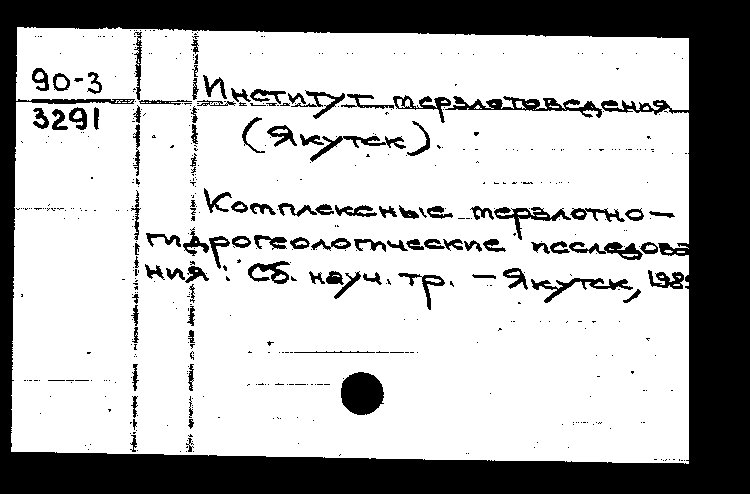 90-3
3291
Институт мерзлотоведения
(Якутск).
Комплексные мерзлотно-
гидрогеологические исследова
ния : Сб. науч. тр. - Якутск, 1989